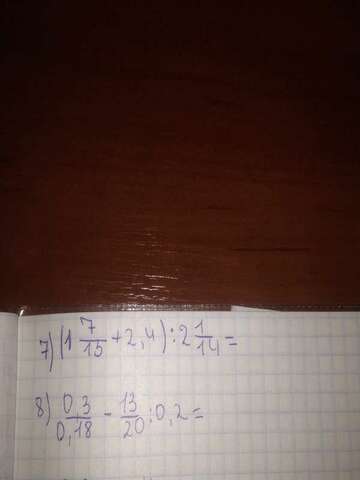 7) (1 7/15 + 2,4) : 2 1/14 =
8) 0,3/0,18 - 13/20 : 0,2 =